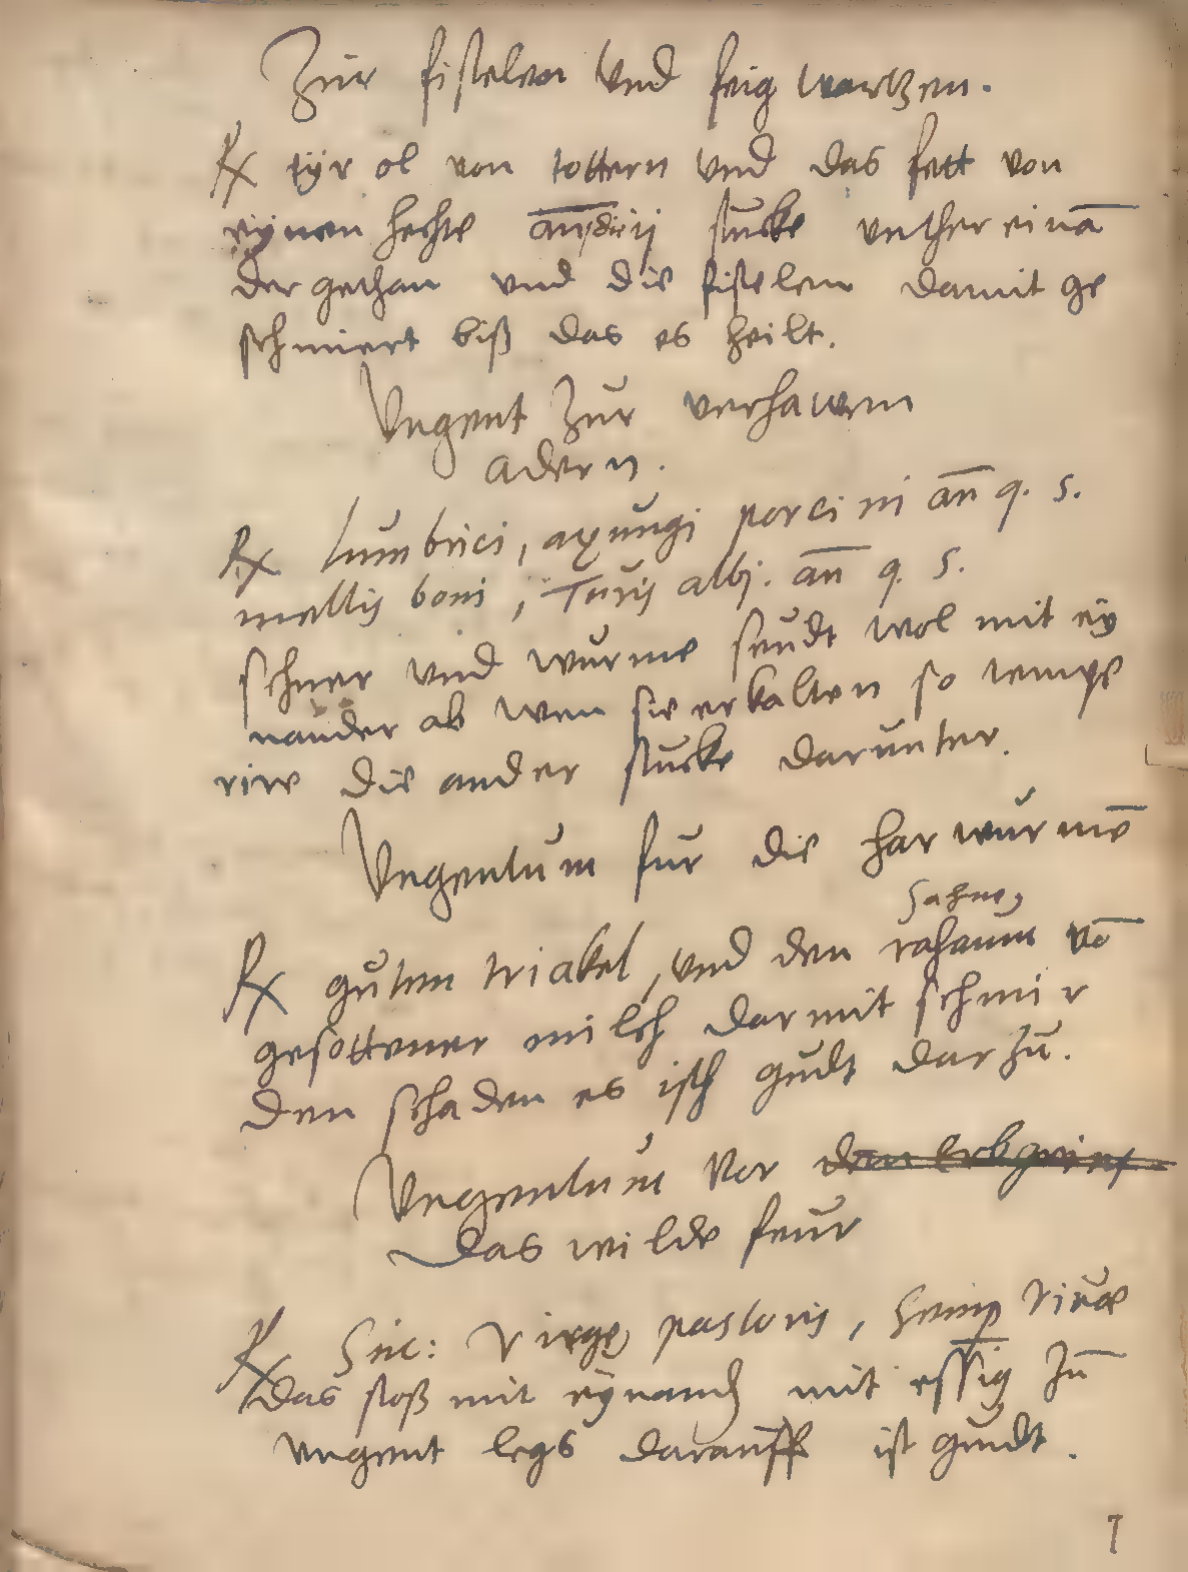 Zur fistelen Und feig wartzen.
Rx eyr ol von tottern Und das fett von
eynen hechte an stucke unther einā
der gethan und die fistelen damit ge
schmiert biß das es heilt.
Ungent Zur verhawenn
adern.
Rx lumbrici, axungi porcini an q. s.
mellis boni, Turis albj. an q. s.
schmer Und wurme seudt wol mit ey
nander ab wen sie erkalten so tempe
rire die ander stucke darunter.
Ungentum fur die har wurmē
Sahne,
Rx guten triakel, und den rahaum vō
gesottener milch darmit schmir
den schaden es isth gudt dar zu.
Ungentum Vor den erbgrint
das wilde feur
Rx Suc: Virge pastoris, Semp Vivæ
das stoß mit eynand mit essig zu
ungent legs darauff ist gudt.
7